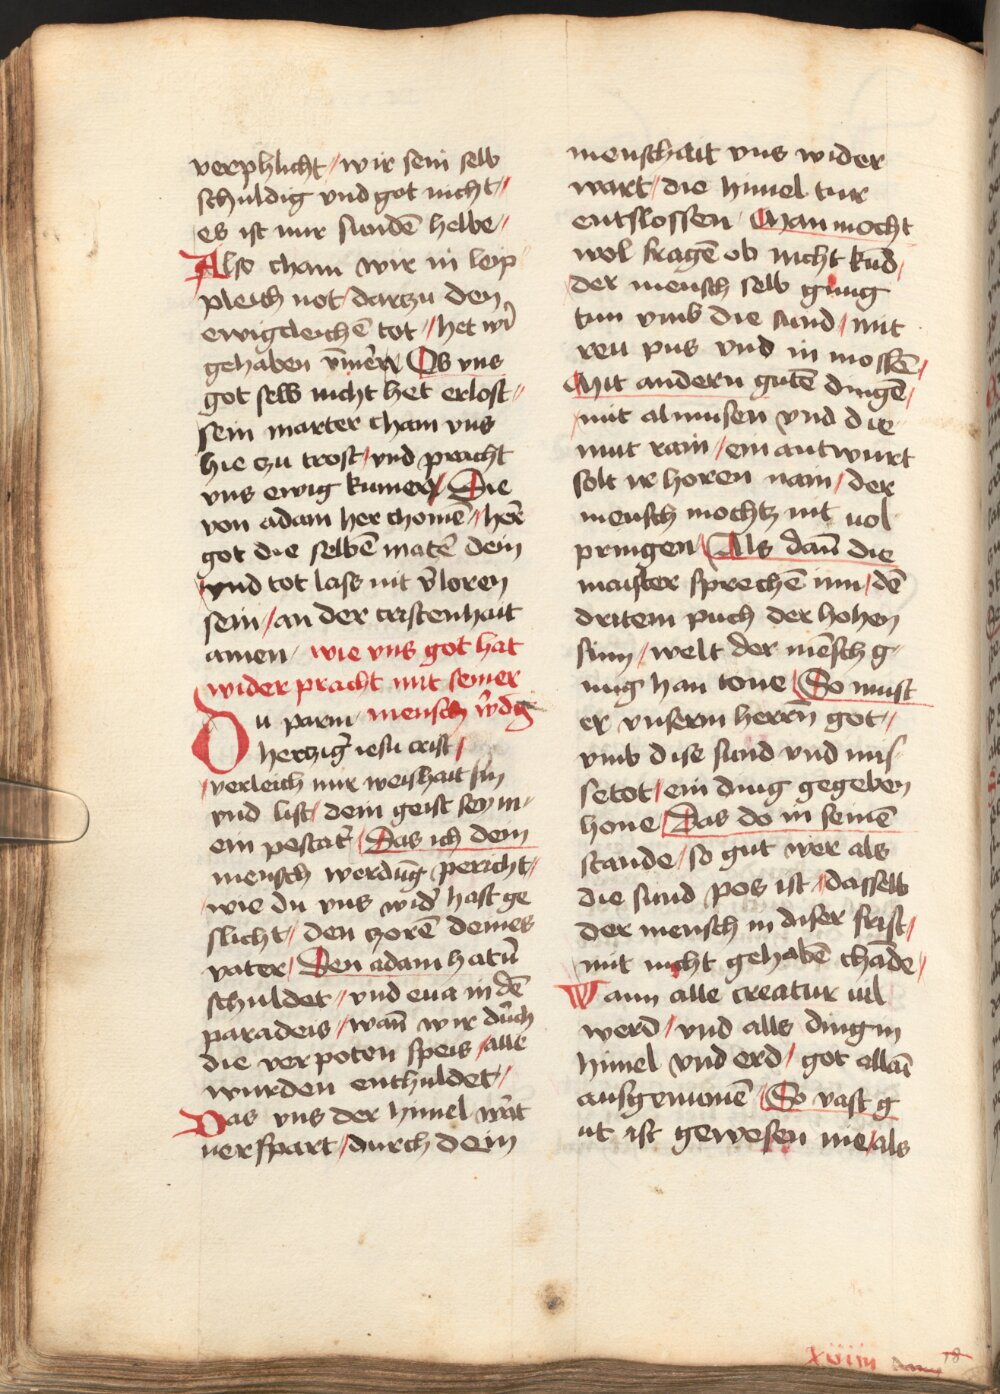 verphlicht / wir sein selb
schuldig vnd got nicht //
es ist nur sundē helbe //
Also cham wir in leip
pleich not / darzu den
ewigcleichē tot // het wir
gehaben Ob vns
got selb nicht het erlost //
sein marter cham vns
hie zu trost / vnd pracht
vns ewig kumer / Die
von adam her chomē / herr
got die selbē matē dein
vnd tot lass nit v̄loren
sein / an der cristenhait
amen / wie vns got hat
wider pracht mit seiner
mensch w̄dg
Du parm
hertzigr̄ iesu crist /
verleich mir weishait sin
vnd list / dem geist sey in
ein pestatr̄ / Das ich dein
mensch werdūg pericht /
wie du vns widr̄ hast ge
slicht / den zorē deines
vater / Den adam hat v̄
schuldet // vnd eua in dē
paradeis / wañ wir durch
die verpoten speis / alle
wurden enthuldet /
Das vns der himel wart
uerspart / durch dein
menschait vns wider
wart / die himel tur
entslossen / Man mocht
wol fragē ob nicht kūd /
der mensch selb gnug
tun vmb die sund / mit
reu pus vnd in messē /
Mit andern gutē dingē /
mit almusen vnd die
mut rain / ein antwurt
solt ir horen nain / der
mensch mochtz nit uol
pringen / Als dañ die
maister sprechē inn / dē
dritem puch der hohen
sinn / welt der mēsch g
nug han tone / So must
er vnserm herrn got /
vmb dise sund vnd mis
setot / ein ding gegeben
hone / Das do in seinē
stande / so gut wer als
die sund pos ist / dasselb
der mensch in diser frist /
mit nicht gehabē chāde /
Wann alle creatur uil
werd / vnd alls ding in
himel vnd erd / got allaī
ausgenumē / So vast g
ut ist gewesen nie / als
xviiii 18